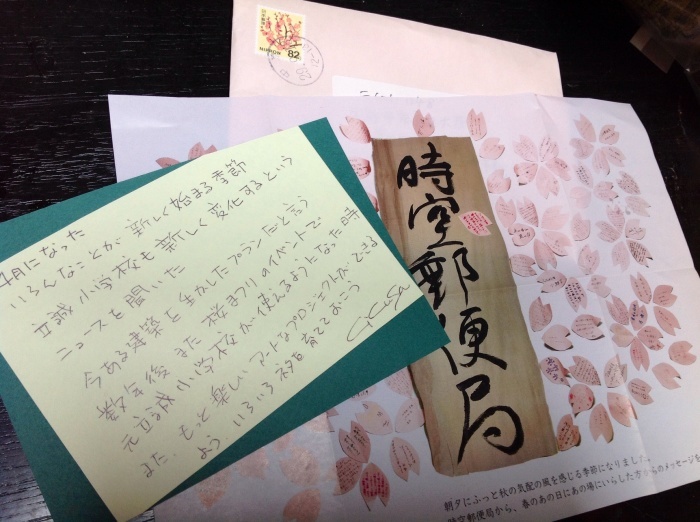 4月になった
いろんなことが 新しく始まる季節
立誠小学校も新しく変化するという
ニュースを聞いた
今ある建築を生かしたプランだと言う
数年後 また 桜まつりのイベントで
元立誠小学校が使えるようになった時
また、もっと楽しいアートなプロジェクトができる
よう、いろいろ 育てておこう
NIPPON 82
時空郵便局
朝夕にふっと秋の気配の風を感じる季節になりました。
時空郵便局から、春のあの日にあの場にいらした方からのメッセージを